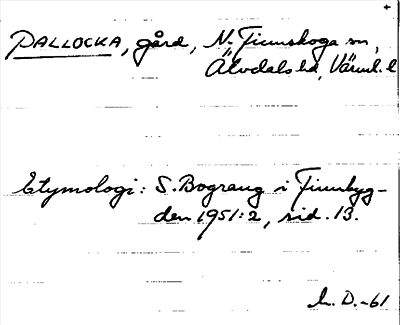 PALLOCKA, gård, N. Finnskoga sn,
Älvdals hd, Värml. l
Etymologi: S. Bograng i Finnbyg-
den 1951:2, sid. 13.
D.-61